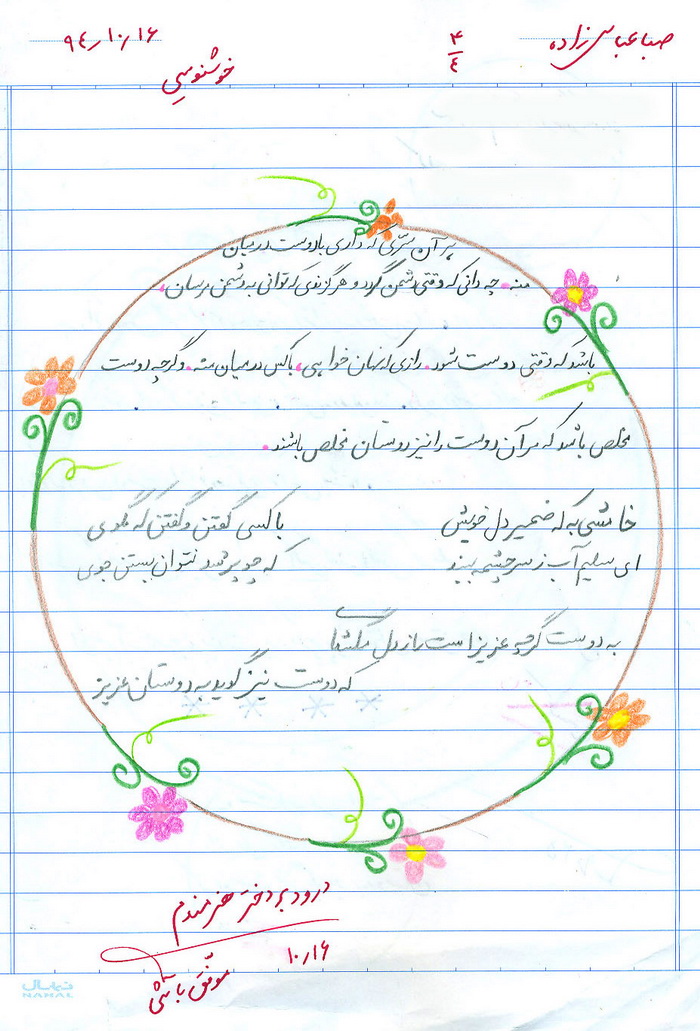 صبا عباس زاده
۴
۴
۹۴/۱۰/۱۶
خوشنویسی
هر آن سّری که داری با دوست در میان
منه. چه دانی که وقتی دشمن گردد و هر گزندی که توانی به دشمن مرسان،
باشد که وقتی دوست شود. رازی که نهان خواهی، با کس در میان منه. وگرچه دوست
مخلص باشد که مر آن دوست را نیز دوستان مخلص باشند.
خامشی به که ضمیر دل خویش
با کسی گفتن و گفتن که مگوی
ای سلیم آب ز سرچشمه ببند
که چو پر شد نتوان بستن جوی
به دوست گرچه عزیز است راز دل مگشا
که دوست نیز گوید به دوستان عزیز
درود بر دختر هنرمندم
۱۰/۱۶
موفّق باشی
نهال
NAHAL